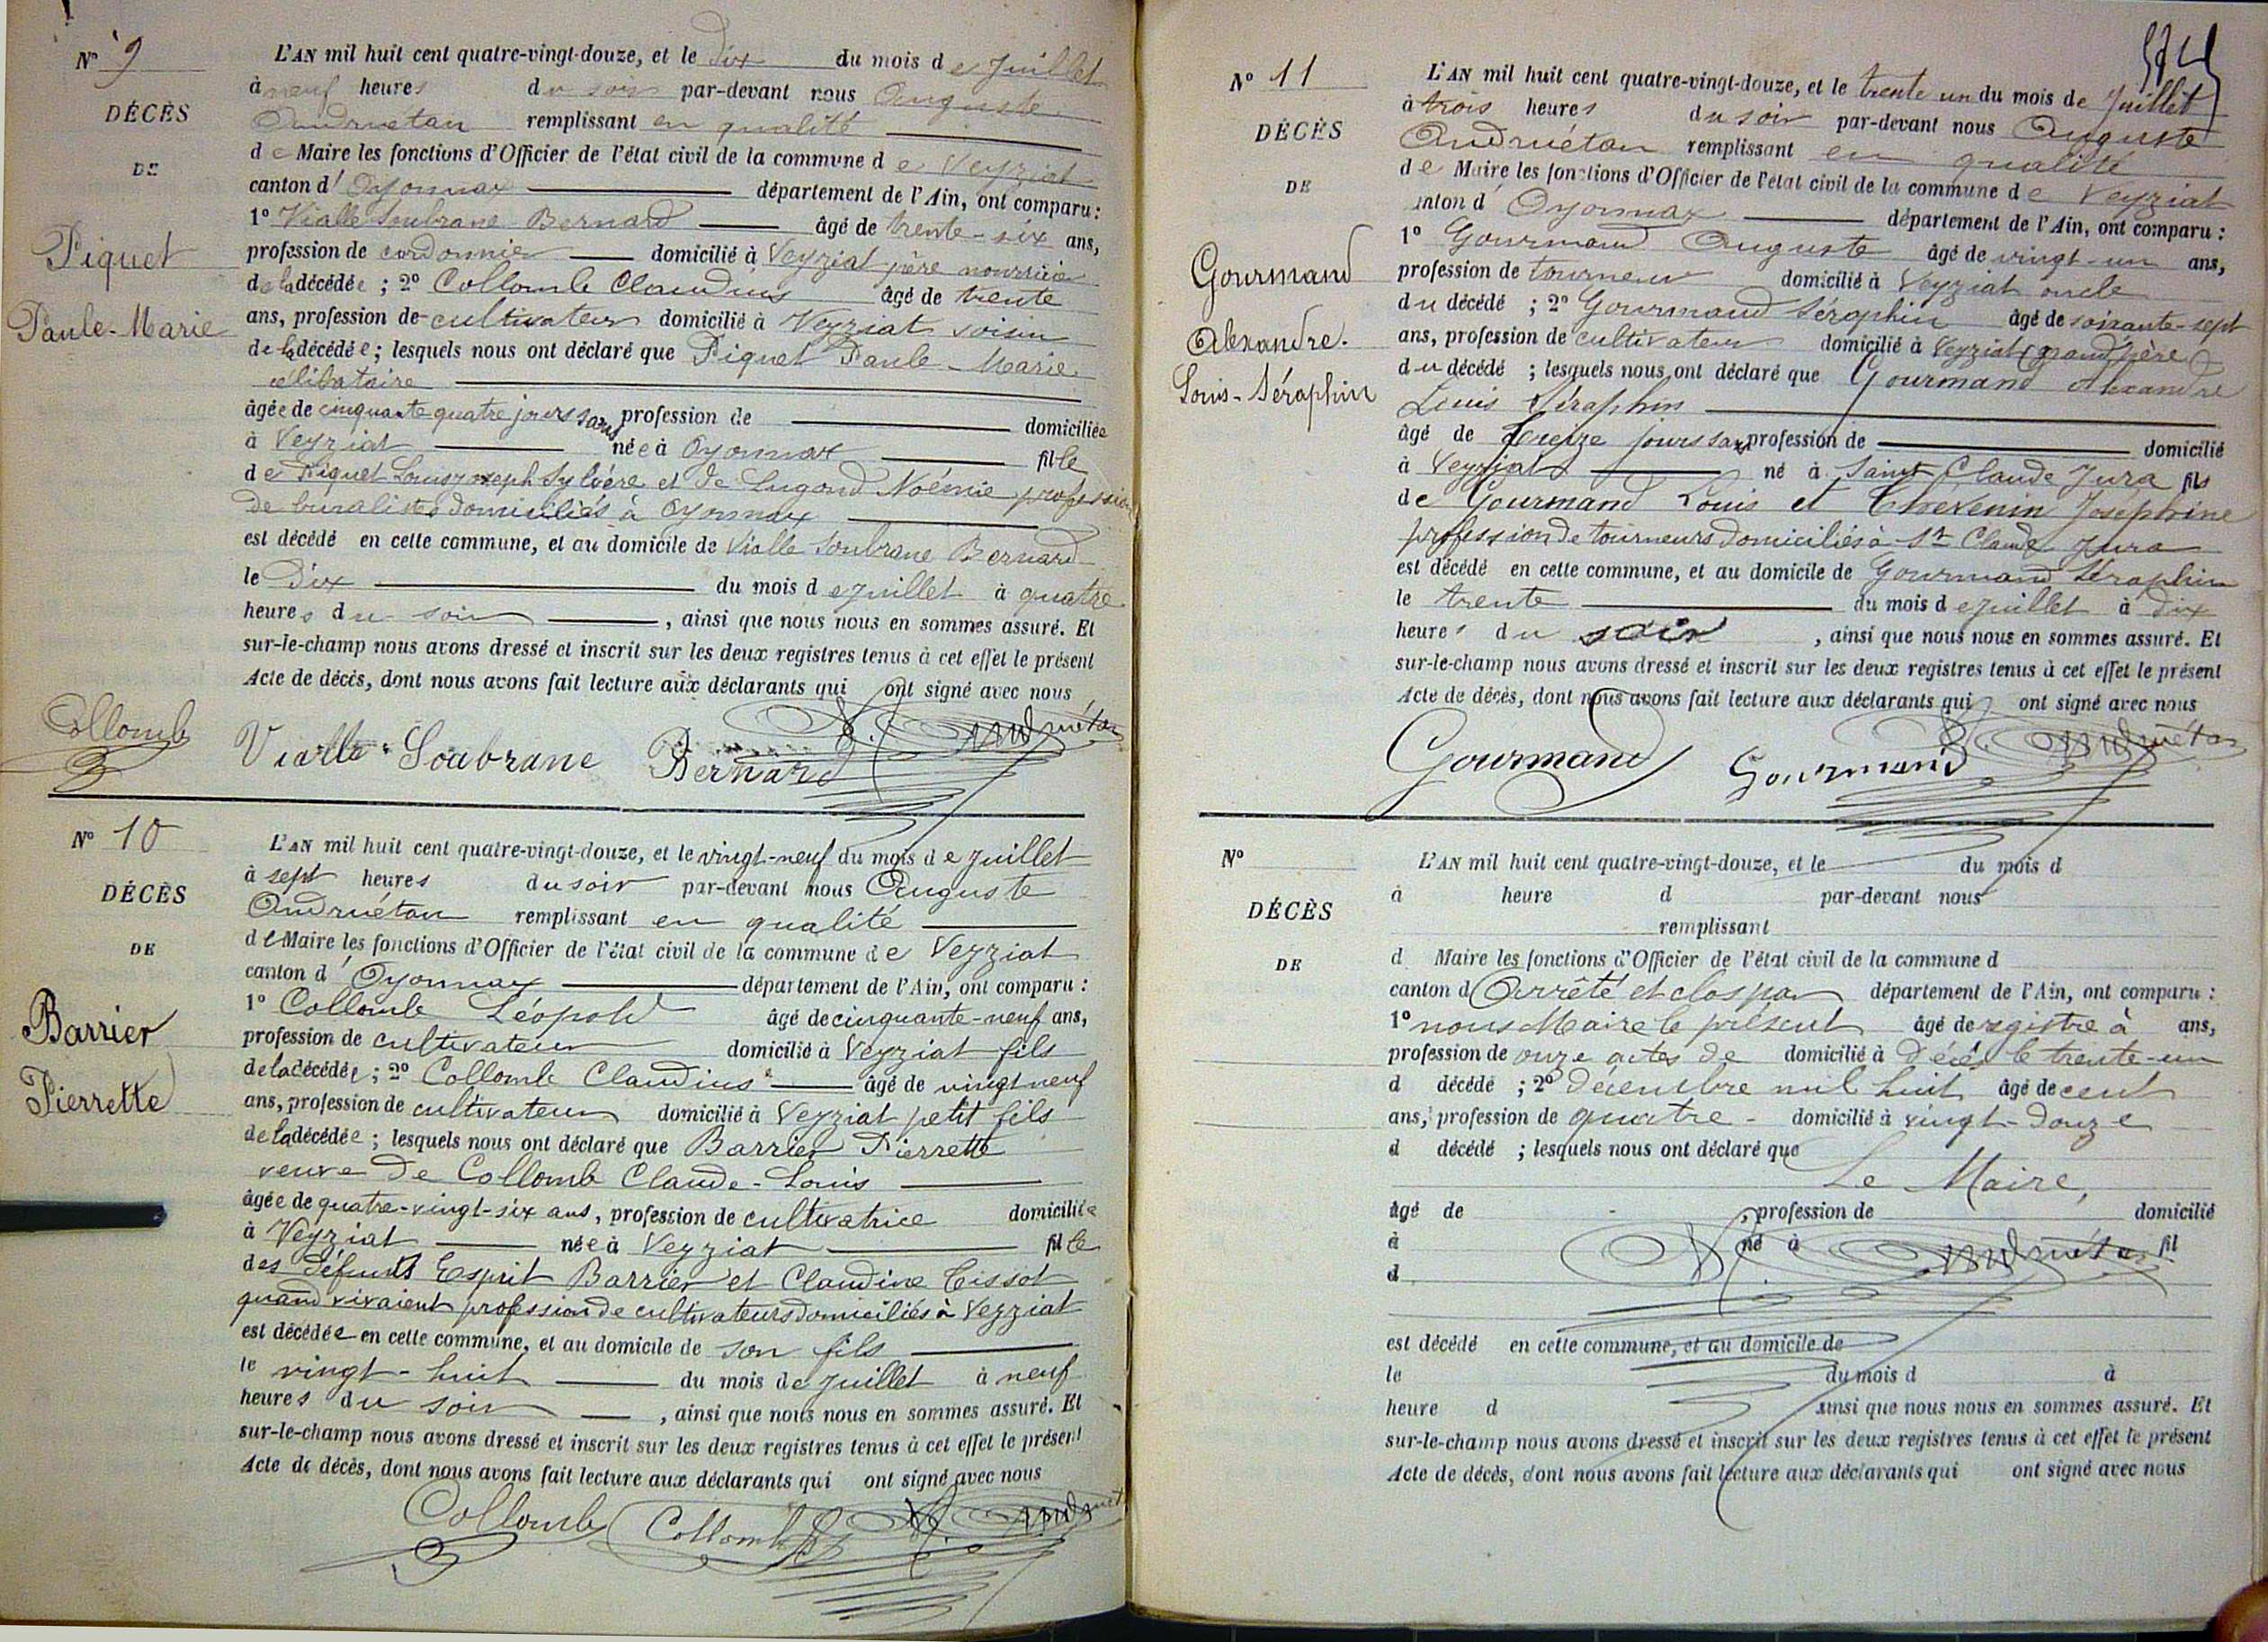 N° 9
DÉCÈS
DE
Piquet
Paule-Marie
L'AN mil huit cent quatre-vingt-douze, et le dix du mois de Juillet
à neuf heures du soir par-devant nous Auguste
Andruétan remplissant en qualité
de Maire les fonctions d'Officier de l'état civil de la commune de Veyziat
canton d'Oyonnax département de l'Ain, ont comparu :
1° Vialle Soubrane Bernard âgé de trente-six ans,
profession de cordonnier domicilié à Veyziat père nourricier
de la décédée ; 2° Collomb Claudius âgé de trente
ans, profession de cultivateur domicilié à Veyziat voisin
de la décédée ; lesquels nous ont déclaré que Piquet Paule-Marie
célibataire
âgée de cinquante quatre jours sans profession de domiciliée
à Veyziat née à Oyonnax fille
de Piquet Louis Joseph Sylvère et de Lugand Noémie profession
de buralistes domiciliés à Oyonnax
est décédé en cette commune, et au domicile de Vialle Soubrane Bernard
le dix du mois de Juillet à quatre
heures du soir , ainsi que nous nous en sommes assuré. Et
sur-le-champ nous avons dressé et inscrit sur les deux registres tenus à cet effet le présent
Acte de décès, dont nous avons fait lecture aux déclarants qui ont signé avec nous
Collomb Vialle Soubrane Bernard A. Andruétan
N° 10
DÉCÈS
DE
Barrier
Pierrette
L'AN mil huit cent quatre-vingt-douze, et le vingt-neuf du mois de Juillet
à sept heures du soir par-devant nous Auguste
Andruétan remplissant en qualité
de Maire les fonctions d'Officier de l'état civil de la commune de Veyziat
canton d'Oyonnax département de l'Ain, ont comparu :
1° Collomb Léopold âgé de cinquante-neuf ans,
profession de cultivateur domicilié à Veyziat fils
de la décédée ; 2° Collomb Claudius âgé de vingt neuf
ans, profession de cultivateur domicilié à Veyziat petit fils
de la décédée ; lesquels nous ont déclaré que Barrier Pierrette
veuve de Collomb Claude-Louis
âgée de quatre-vingt-six ans, profession de cultivatrice domiciliée
à Veyziat née à Veyziat fille
des défunts Esprit Barrier et Claudine Tissot
quand vivaient profession de cultivateurs domiciliés à Veyziat
est décédée en cette commune, et au domicile de son fils
le vingt-huit du mois de Juillet à neuf
heures du soir , ainsi que nous nous en sommes assuré. Et
sur-le-champ nous avons dressé et inscrit sur les deux registres tenus à cet effet le présent
Acte de décès, dont nous avons fait lecture aux déclarants qui ont signé avec nous
Collomb Collomb A. Andruétan
N° 11
DÉCÈS
DE
Gourmand
Alexandre.
Louis-Séraphin
L'AN mil huit cent quatre-vingt-douze, et le trente un du mois de Juillet
à trois heures du soir par-devant nous Auguste
Andruétan remplissant en qualité
de Maire les fonctions d'Officier de l'état civil de la commune de Veyziat
anton d'Oyonnax département de l'Ain, ont comparu :
1° Gourmand Auguste âgé de vingt-un ans,
profession de tourneur domicilié à Veyziat oncle
du décédé ; 2° Gourmand Séraphin âgé de soixante-sept
ans, profession de cultivateur domicilié à Veyziat grand père
du décédé ; lesquels nous ont déclaré que Gourmand Alexandre
Louis Séraphin
âgé de treize jours sans profession de domicilié
à Veyziat né à Saint-Claude Jura fils
de Gourmand Louis et Thevenin Joséphine
profession de tourneurs domiciliés à St Claude Jura
est décédé en cette commune, et au domicile de Gourmand Séraphin
le trente du mois de Juillet à dix
heures du soir , ainsi que nous nous en sommes assuré. Et
sur-le-champ nous avons dressé et inscrit sur les deux registres tenus à cet effet le présent
Acte de décès, dont nous avons fait lecture aux déclarants qui ont signé avec nous
Gourmand Gourmand A. Andruétan
N°
DÉCÈS
DE
L'AN mil huit cent quatre-vingt-douze, et le du mois d
à heure d par-devant nous
remplissant
d Maire les fonctions d'Officier de l'état civil de la commune d
canton d Arrêté et clos par département de l'Ain, ont comparu :
1° nous Maire le présent âgé de registre à ans,
profession de onze actes de domicilié à décès le trente-un
d décédé ; 2° décembre mil huit âgé de cent
ans, profession de quatre- domicilié à vingt-douze
d décédé ; lesquels nous ont déclaré que
Le Maire,
âgé de , profession de domicilié
à né à fil
d A. Andruétan
est décédé en cette commune, et au domicile de
le du mois d à
heure d ainsi que nous nous en sommes assuré. Et
sur-le-champ nous avons dressé et inscrit sur les deux registres tenus à cet effet le présent
Acte de décès, dont nous avons fait lecture aux déclarants qui ont signé avec nous